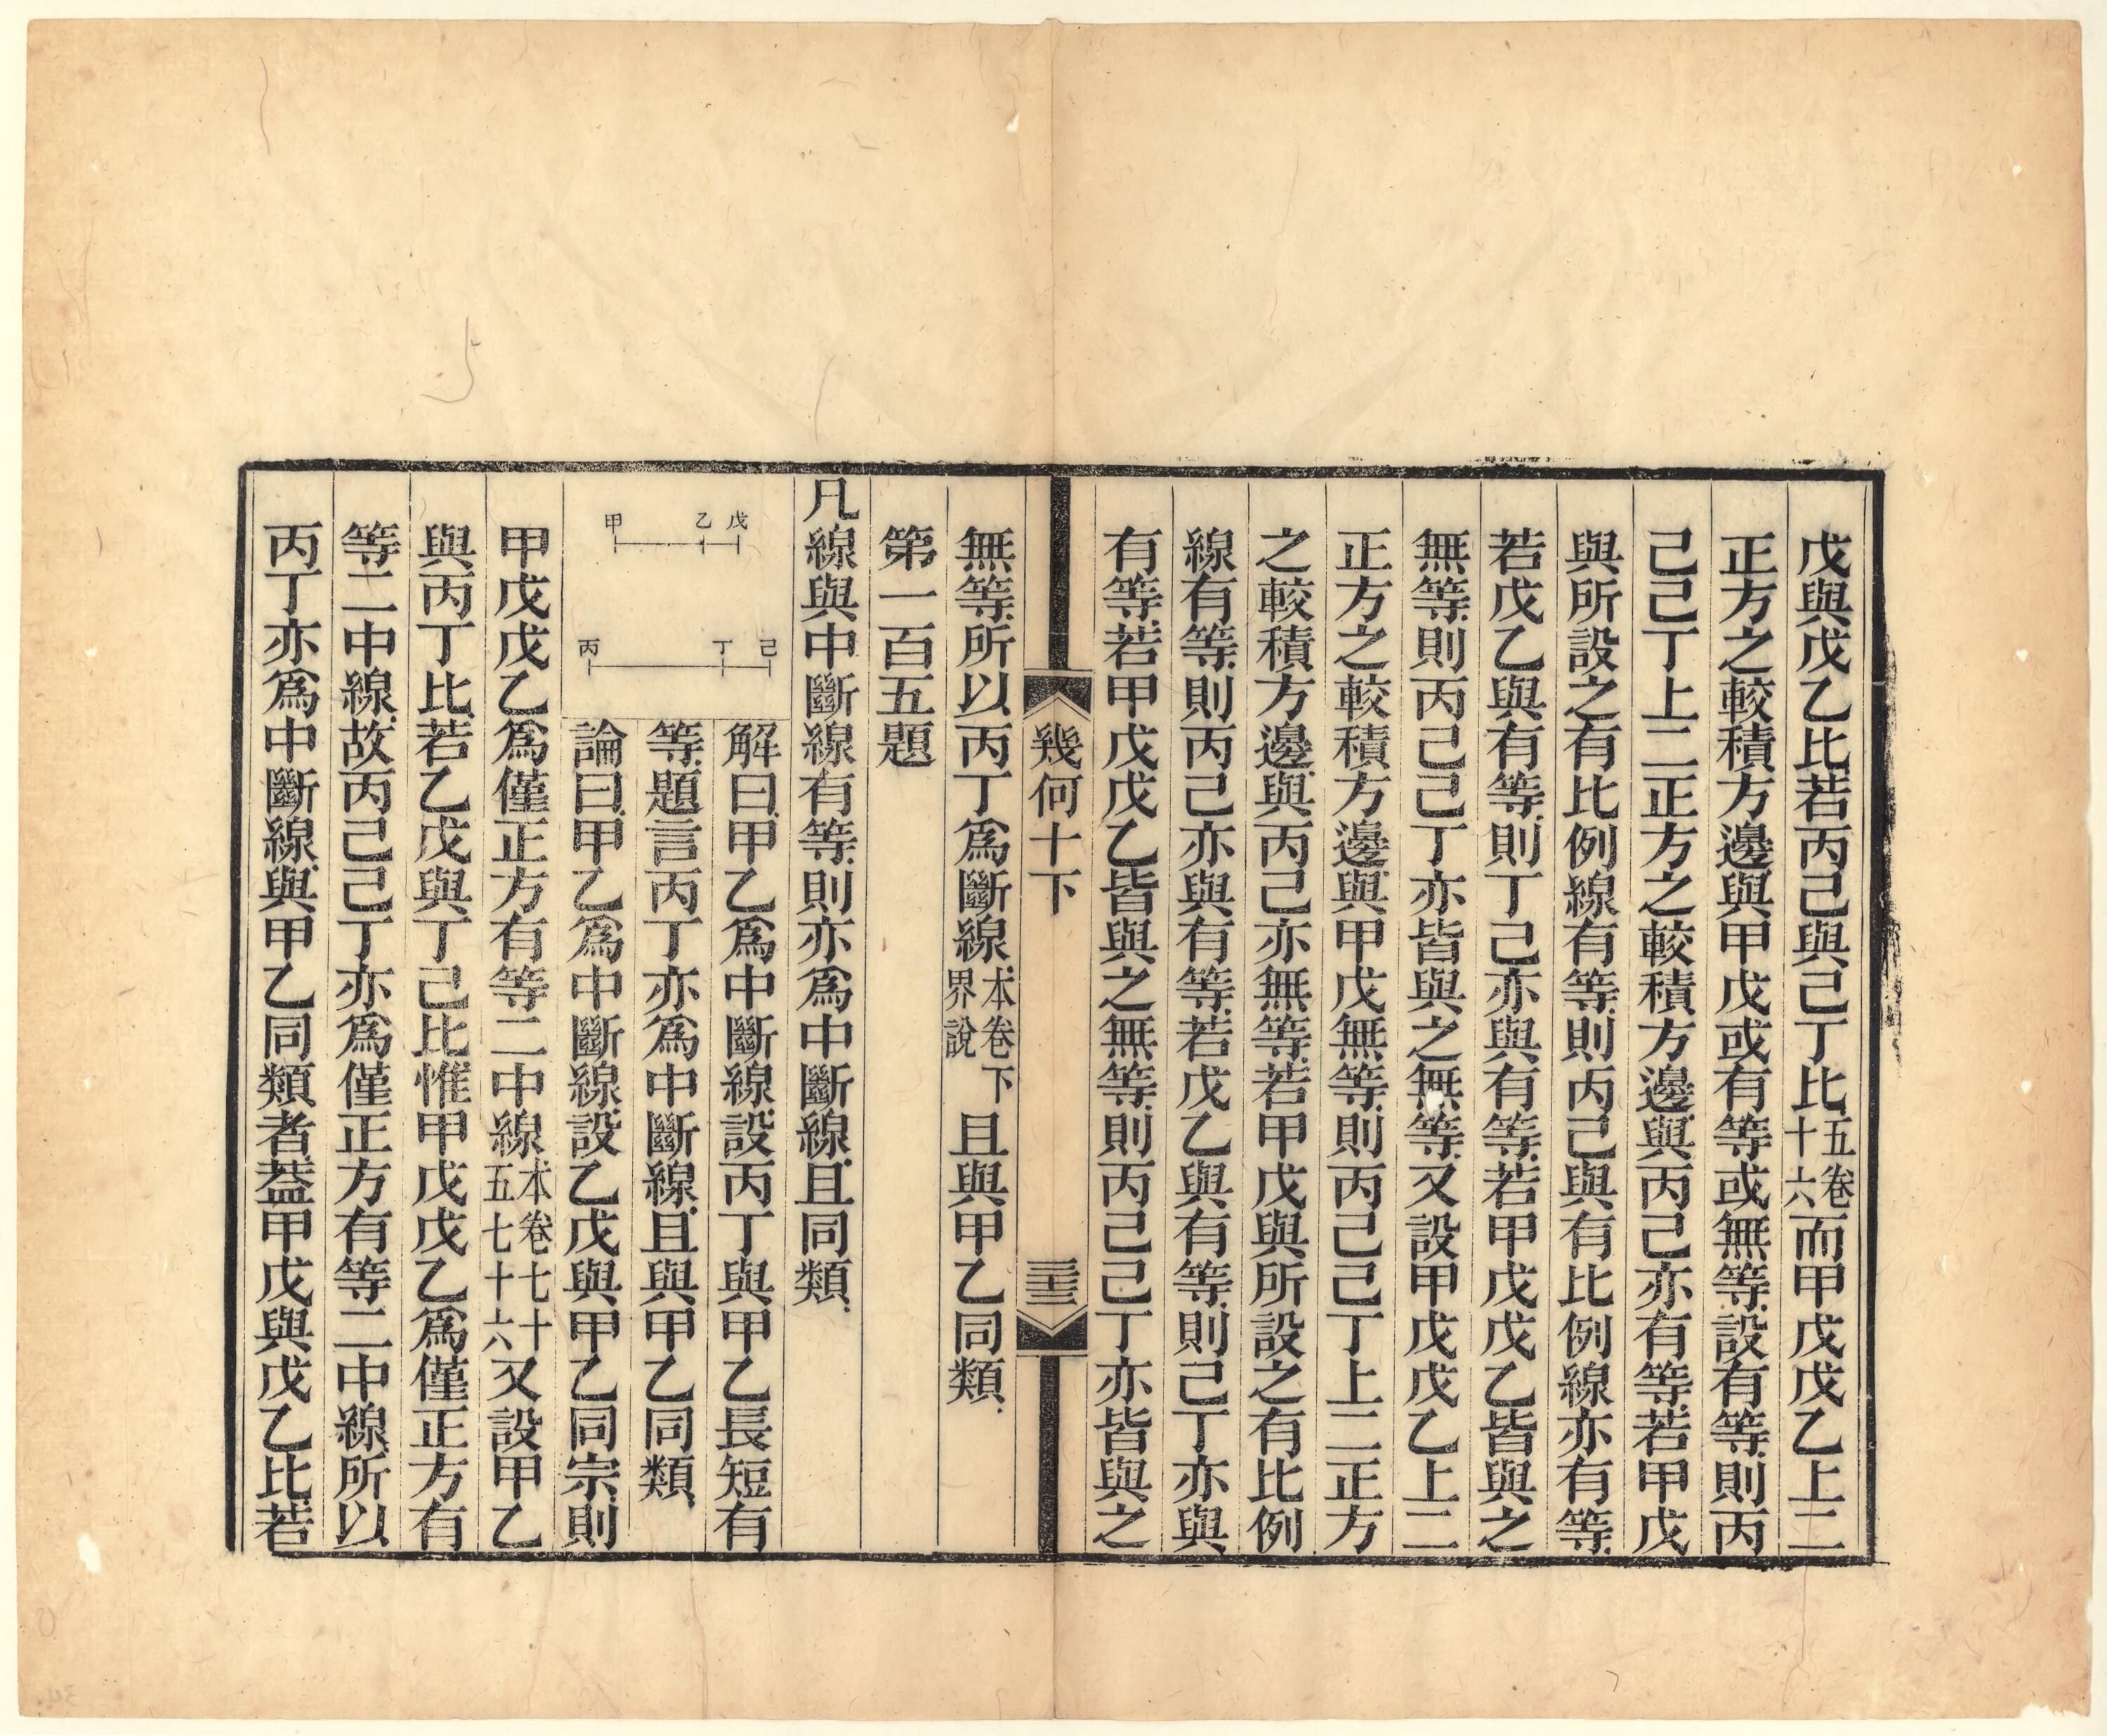 戊與戊乙比若丙己與己丁比五卷十六而甲戊戊乙上二
正方之較積方邊與甲戊或有等或無等設有等則丙
己己丁上二正方之較積方邊與丙己亦有等若甲戊
與所設之有比例線有等則丙己與有比例線亦有等
若戊乙與有等則丁己亦與有等若甲戊戊乙皆與之
無等則丙己己丁亦皆與之無等又設甲戊戊乙上二
正方之較積方邊與甲戊無等則丙己己丁上二正方
之較積方邊與丙己亦無等若甲戊與所設之有比例
線有等則丙己亦與有等若戊乙與有等則己丁亦與
有等若甲戊戊乙皆與之無等則丙己己丁亦皆與之
幾何十下
三十三
無等所以丙丁爲斷線本卷下界說且與甲乙同類
第一百五題
凡線與中斷線有等則亦爲中斷線且同類
甲 乙 戊
丙 丁 己
解曰甲乙爲中斷線設丙丁與甲乙長短有
等題言丙丁亦爲中斷線且與甲乙同類
論曰甲乙爲中斷線設乙戊與甲乙同宗則
甲戊戊乙爲僅正方有等二中線本卷七十五七十六又設甲乙
與丙丁比若乙戊與丁己比惟甲戊戊乙爲僅正方有
等二中線故丙己己丁亦爲僅正方有等二中線所以
丙丁亦爲中斷線與甲乙同類者葢甲戊與戊乙比若